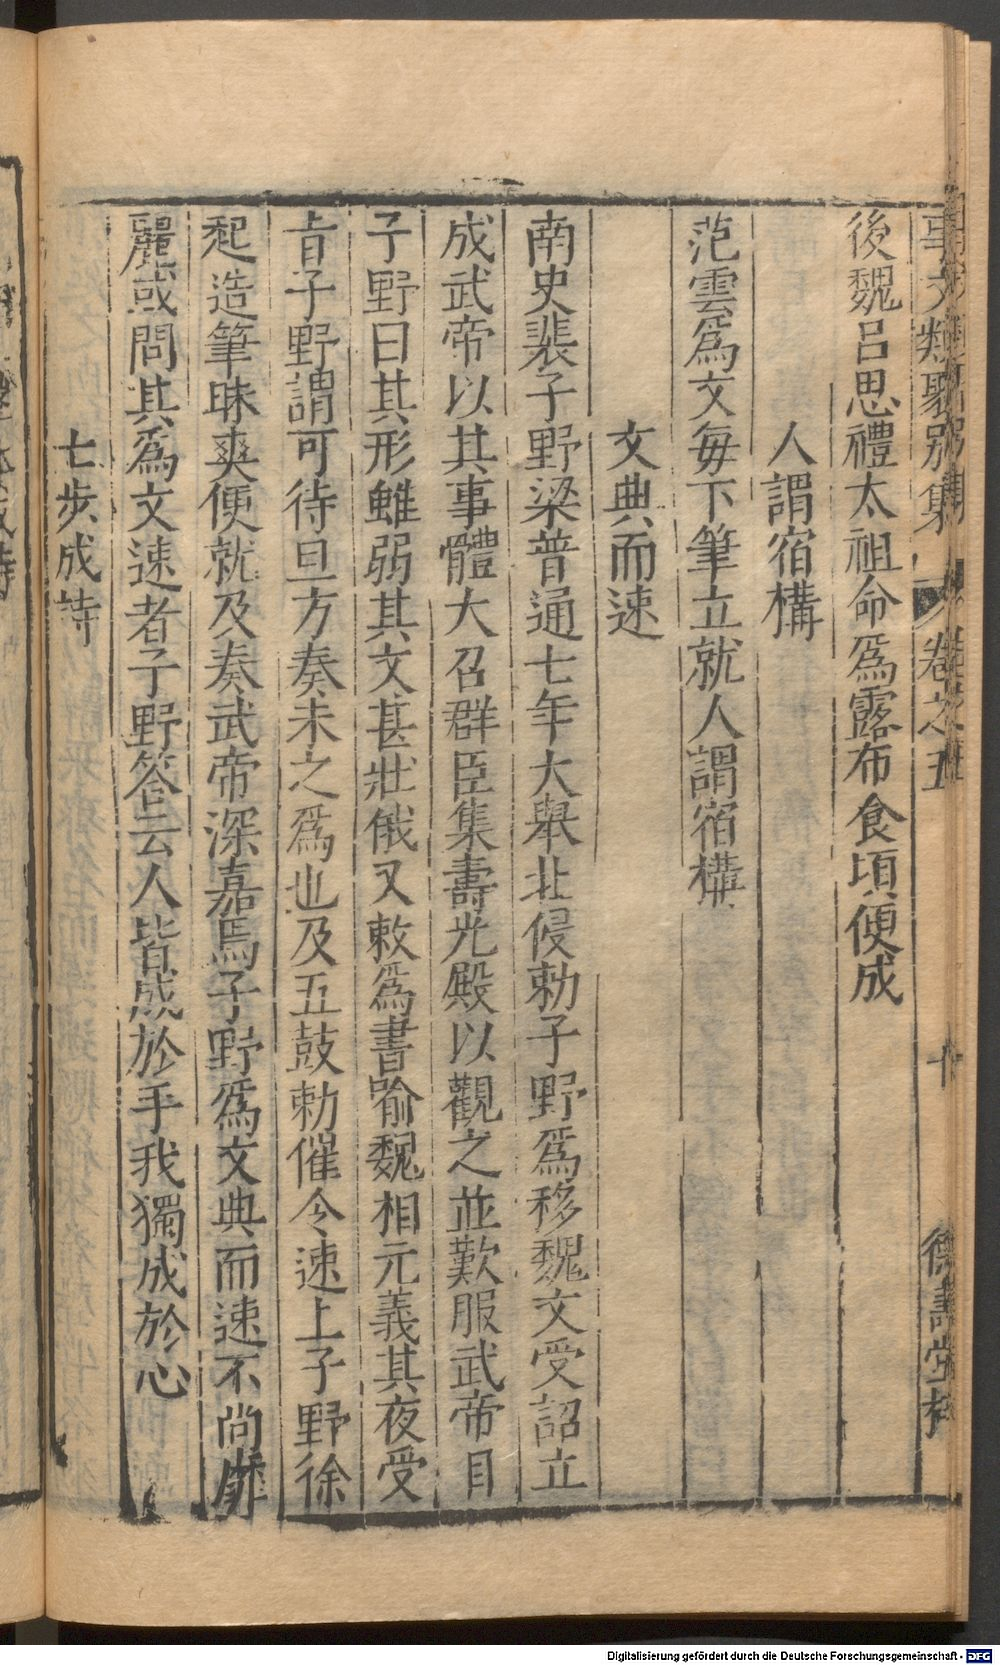 事文類聚別集 卷之五 十 德壽堂梓
後魏呂思禮太祖命爲露布食頃便成
人謂宿構
范雲爲文每下筆立就人謂宿構
文典而速
南史裴子野梁普通七年大舉北侵勑子野爲移魏文受詔立
成武帝以其事體大召群臣集壽光殿以觀之並歎服武帝目
子野曰其形雖弱其文甚壯俄又敕爲書喻魏相元義其夜受
旨子野謂可待旦方奏未之爲也及五鼓勑催令速上子野徐
起造筆昧爽便就及奏武帝深嘉焉子野爲文典而速不尚靡
麗或問其爲文速者子野答云人皆成於手我獨成於心
七步成詩
Digitalisierung gefördert durch die Deutsche Forschungsgemeinschaft - DFG